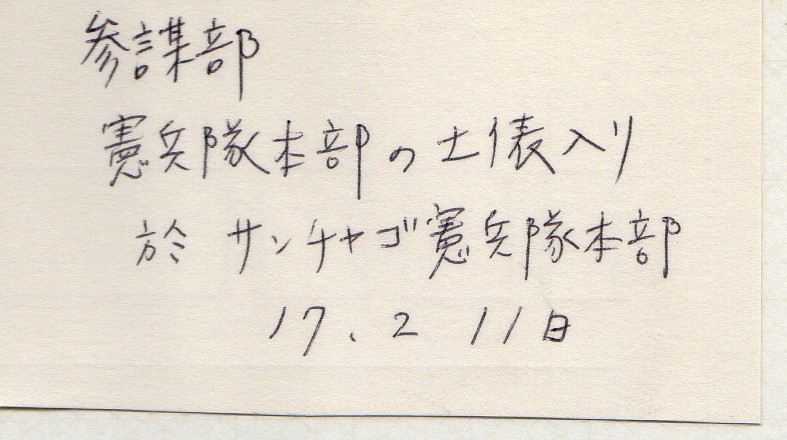 参謀部
憲兵隊本部の土俵入り
於 サンチャゴ憲兵隊本部
17. 2 11日